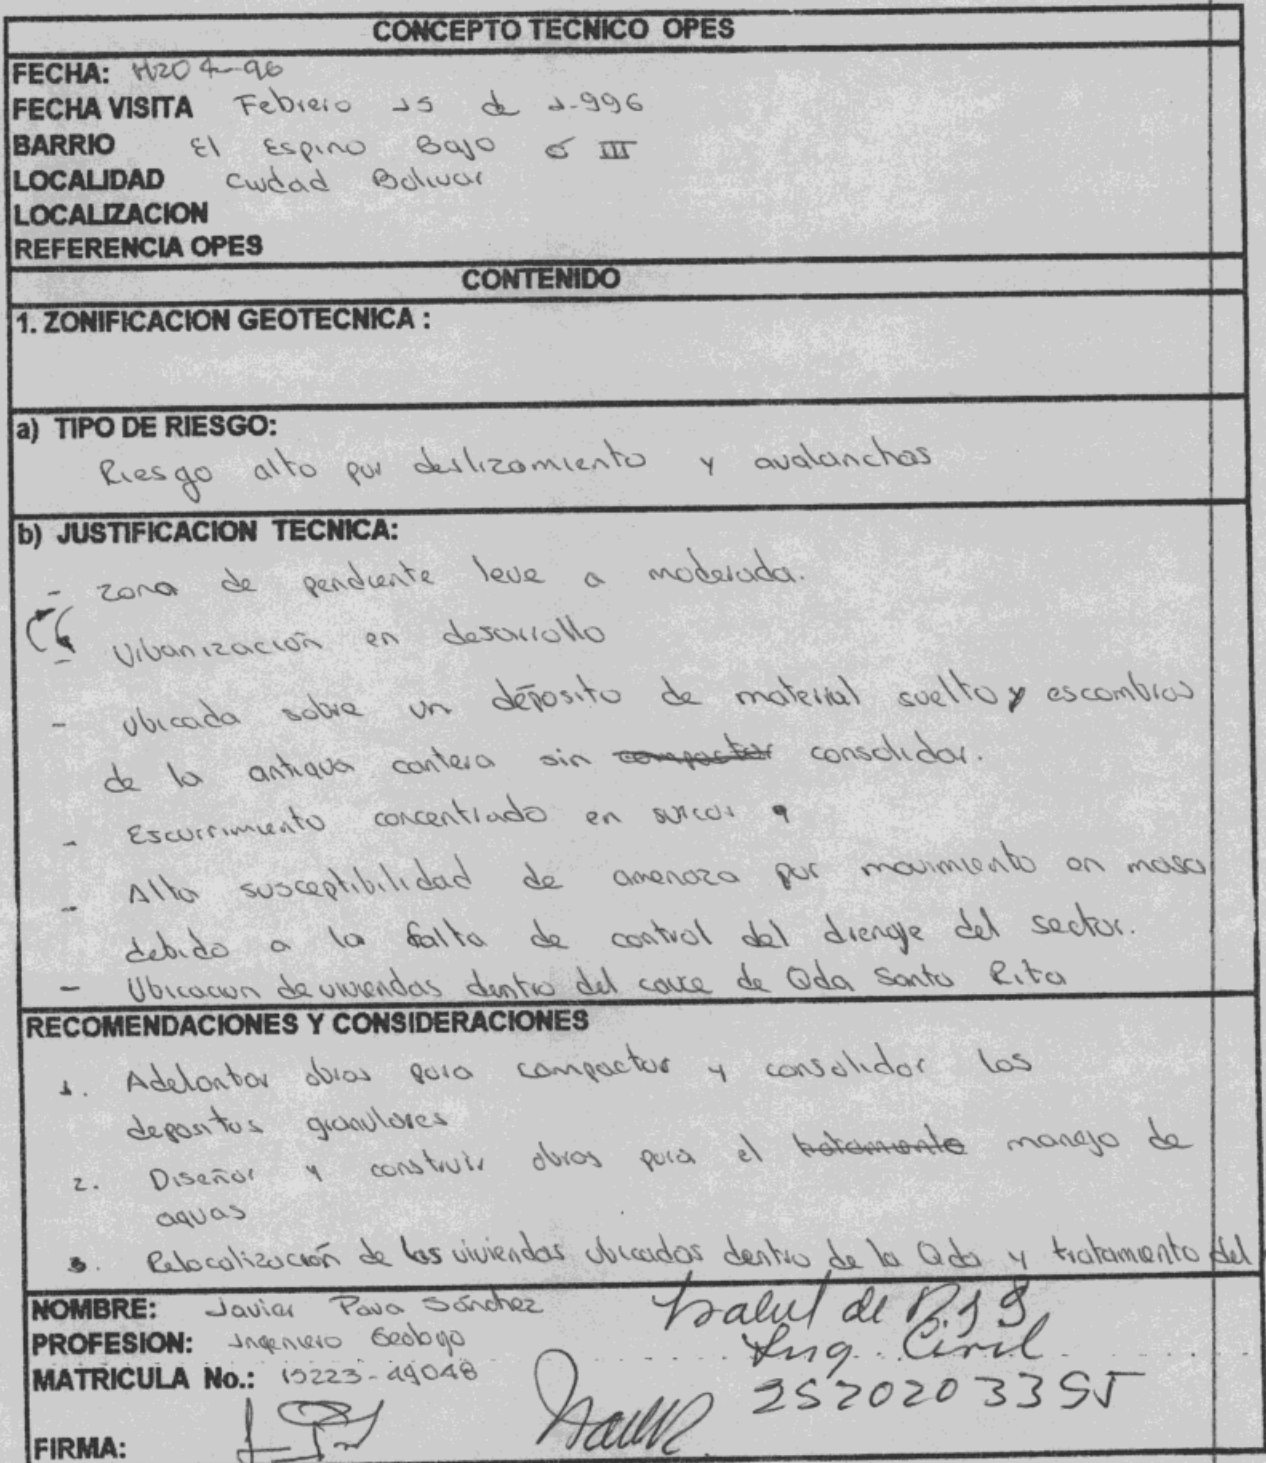 CONCEPTO TECNICO OPES
FECHA: 04-96
FECHA VISITA Febrero 15 de 1.996
BARRIO El Espino Bajo ó III
LOCALIDAD Ciudad Bolivar
LOCALIZACION
REFERENCIA OPES
CONTENIDO
1. ZONIFICACION GEOTECNICA :
a) TIPO DE RIESGO:
Riesgo alto por deslizamiento y avalanchas
b) JUSTIFICACION TECNICA:
- zona de pendiente leve a moderada.
- Urbanización en desarrollo
- Ubicada sobre un déposito de material suelto y escombros
de la antigua cantera sin compactar consolidar.
- Escurrimiento concentrado en surcos
- Alta susceptibilidad de amenaza por movimiento en masa
debido a la falta de control del drenaje del sector.
- Ubicacion de viviendas dentro del cauce de Qda Santa Rita
RECOMENDACIONES Y CONSIDERACIONES
1. Adelantar obras para compactar y consolidar los
depositos granulares
2. Diseñar y construir obras para el tratamiento manejo de
aguas
3. Relocalización de las viviendas ubicadas dentro de la Qda y tratamiento del
NOMBRE: Javier Pava Sánchez
PROFESION: Ingeniero Geologo
MATRICULA No.: 15223-49048
FIRMA:
de
Ing. Civil